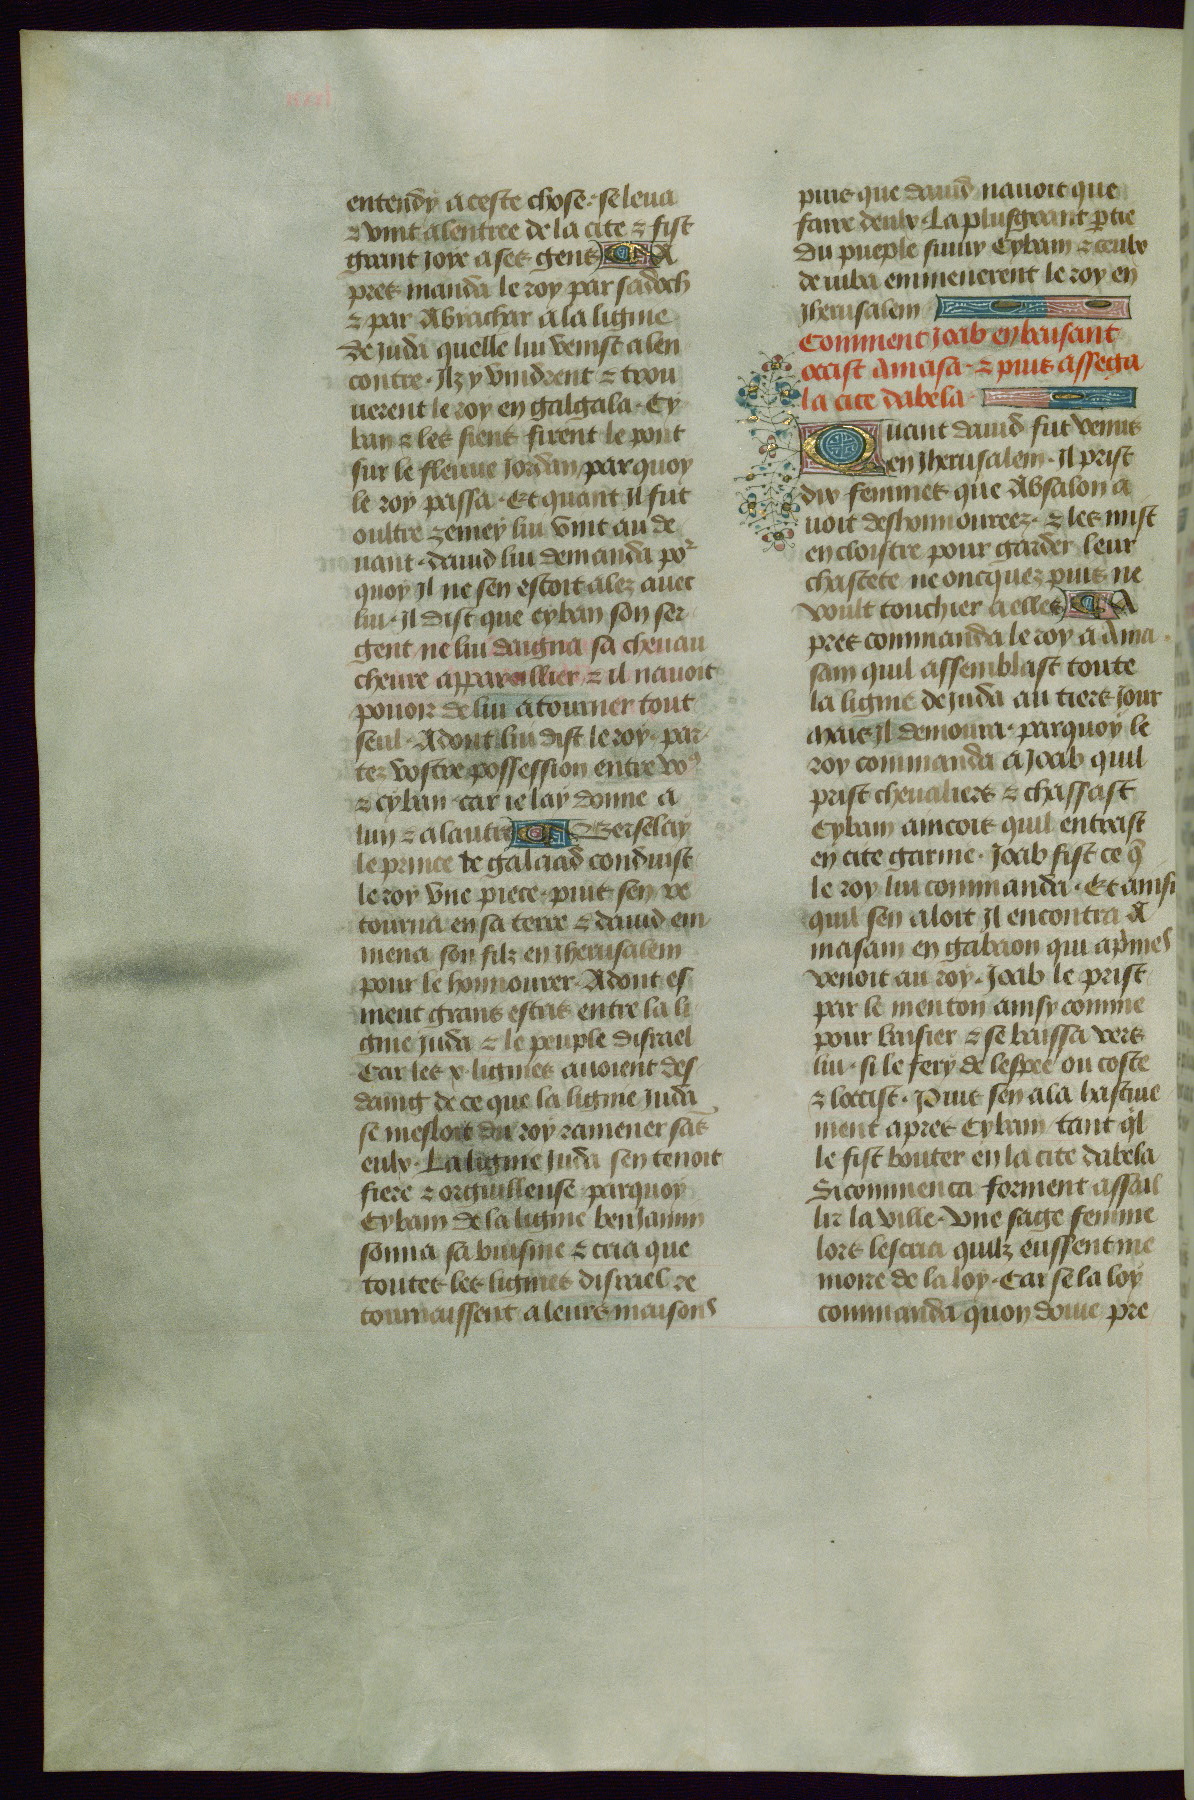 entendy a ceste chose. se leua
⁊ vint alentree de la cite ⁊ fist
grant ioye a ses gens A
pres manda le roy par sadoch
⁊ par Abyathar a la lignie
de juda quelle lui venist alen
contre. Ilz y vindrent ⁊ trou
uerent le roy en galgala. Cy
ban ⁊ les siens firent le pont
sur le fleuue Jordan par quoy
le roy passa. Et quant Il fut
oultre zemey lui vint au de
uant. dauid lui demanda por
quoy Il ne sen estoit alez auec
lui. Il dist que cyban son ser
gent ne lui daigna sa cheuau
cheure apparaillier ⁊ il nauoit
pouoir de lui atourner tout
seul. Adont lui dist le roy. par
tez vostre possession entre vo9
⁊ cyban car ie lay donne a
lun ⁊ a lautre Berselay
le prince de galaad conduist
le roy vne piece. puis sen re
tourna en sa terre ⁊ dauid em
mena son filz en Jherusalem
pour le honnourer. Adont es
meut grans estris entre la li
gnie Juda ⁊ le peuple disrael
Car les x lignies auoient des
daing de ce que la lignie Juda
se mesloit du roy ramener sās
eulx. La lignie Juda sen tenoit
fiere ⁊ orguilleuse parquoy
Cybam de la lignie benJamin
sonna sa buisine ⁊ cria que
toutes les lignies disrael re
tournaissent a leurs maisons
puis que dauid nauoit que
faire deulx. La plus grant ptie
du pueple siuuy Cybam ⁊ ceulx
de iuda emmenerent le roy en
Jherusalem
Comment Joab en baisant
occist Amasa. ⁊ puis assega
la cite dabela.
Quant dauid fut venus
en Jherusalem. Il prist
dix femmes que Absalon a
uoit deshonnourees. ⁊ les mist
en cloistre pour garder leur
chastete ne oncques puis ne
voult touchier a elles A
pres commanda le roy a Ama
sam quil assemblast toute
la lignie de juda au tiers jour
Mais Il demoura. parquoy le
roy commanda a Joab quil
prist cheualiers ⁊ chassast
Cybam aincois quil entrast
en cite garnie. Joab fist ce q̄
le roy lui commanda. Et ainsi
quil sen aloit Il encontra A
masam en gabaon qui apmes
venoit au roy. Joab le prist
par le menton ainsy comme
pour baisier ⁊ se baissa vers
lui. si le fery de lespee ou coste
⁊ loccist. Puis sen ala hastiue
ment apres Cybam tant ql
le fist bouter en la cite dabela
Si commenca forment assail
lir la ville. Vne sage femme
lors lescria quilz eussent me
moire de la loy. Car se la loy
commanda quon doiue pre